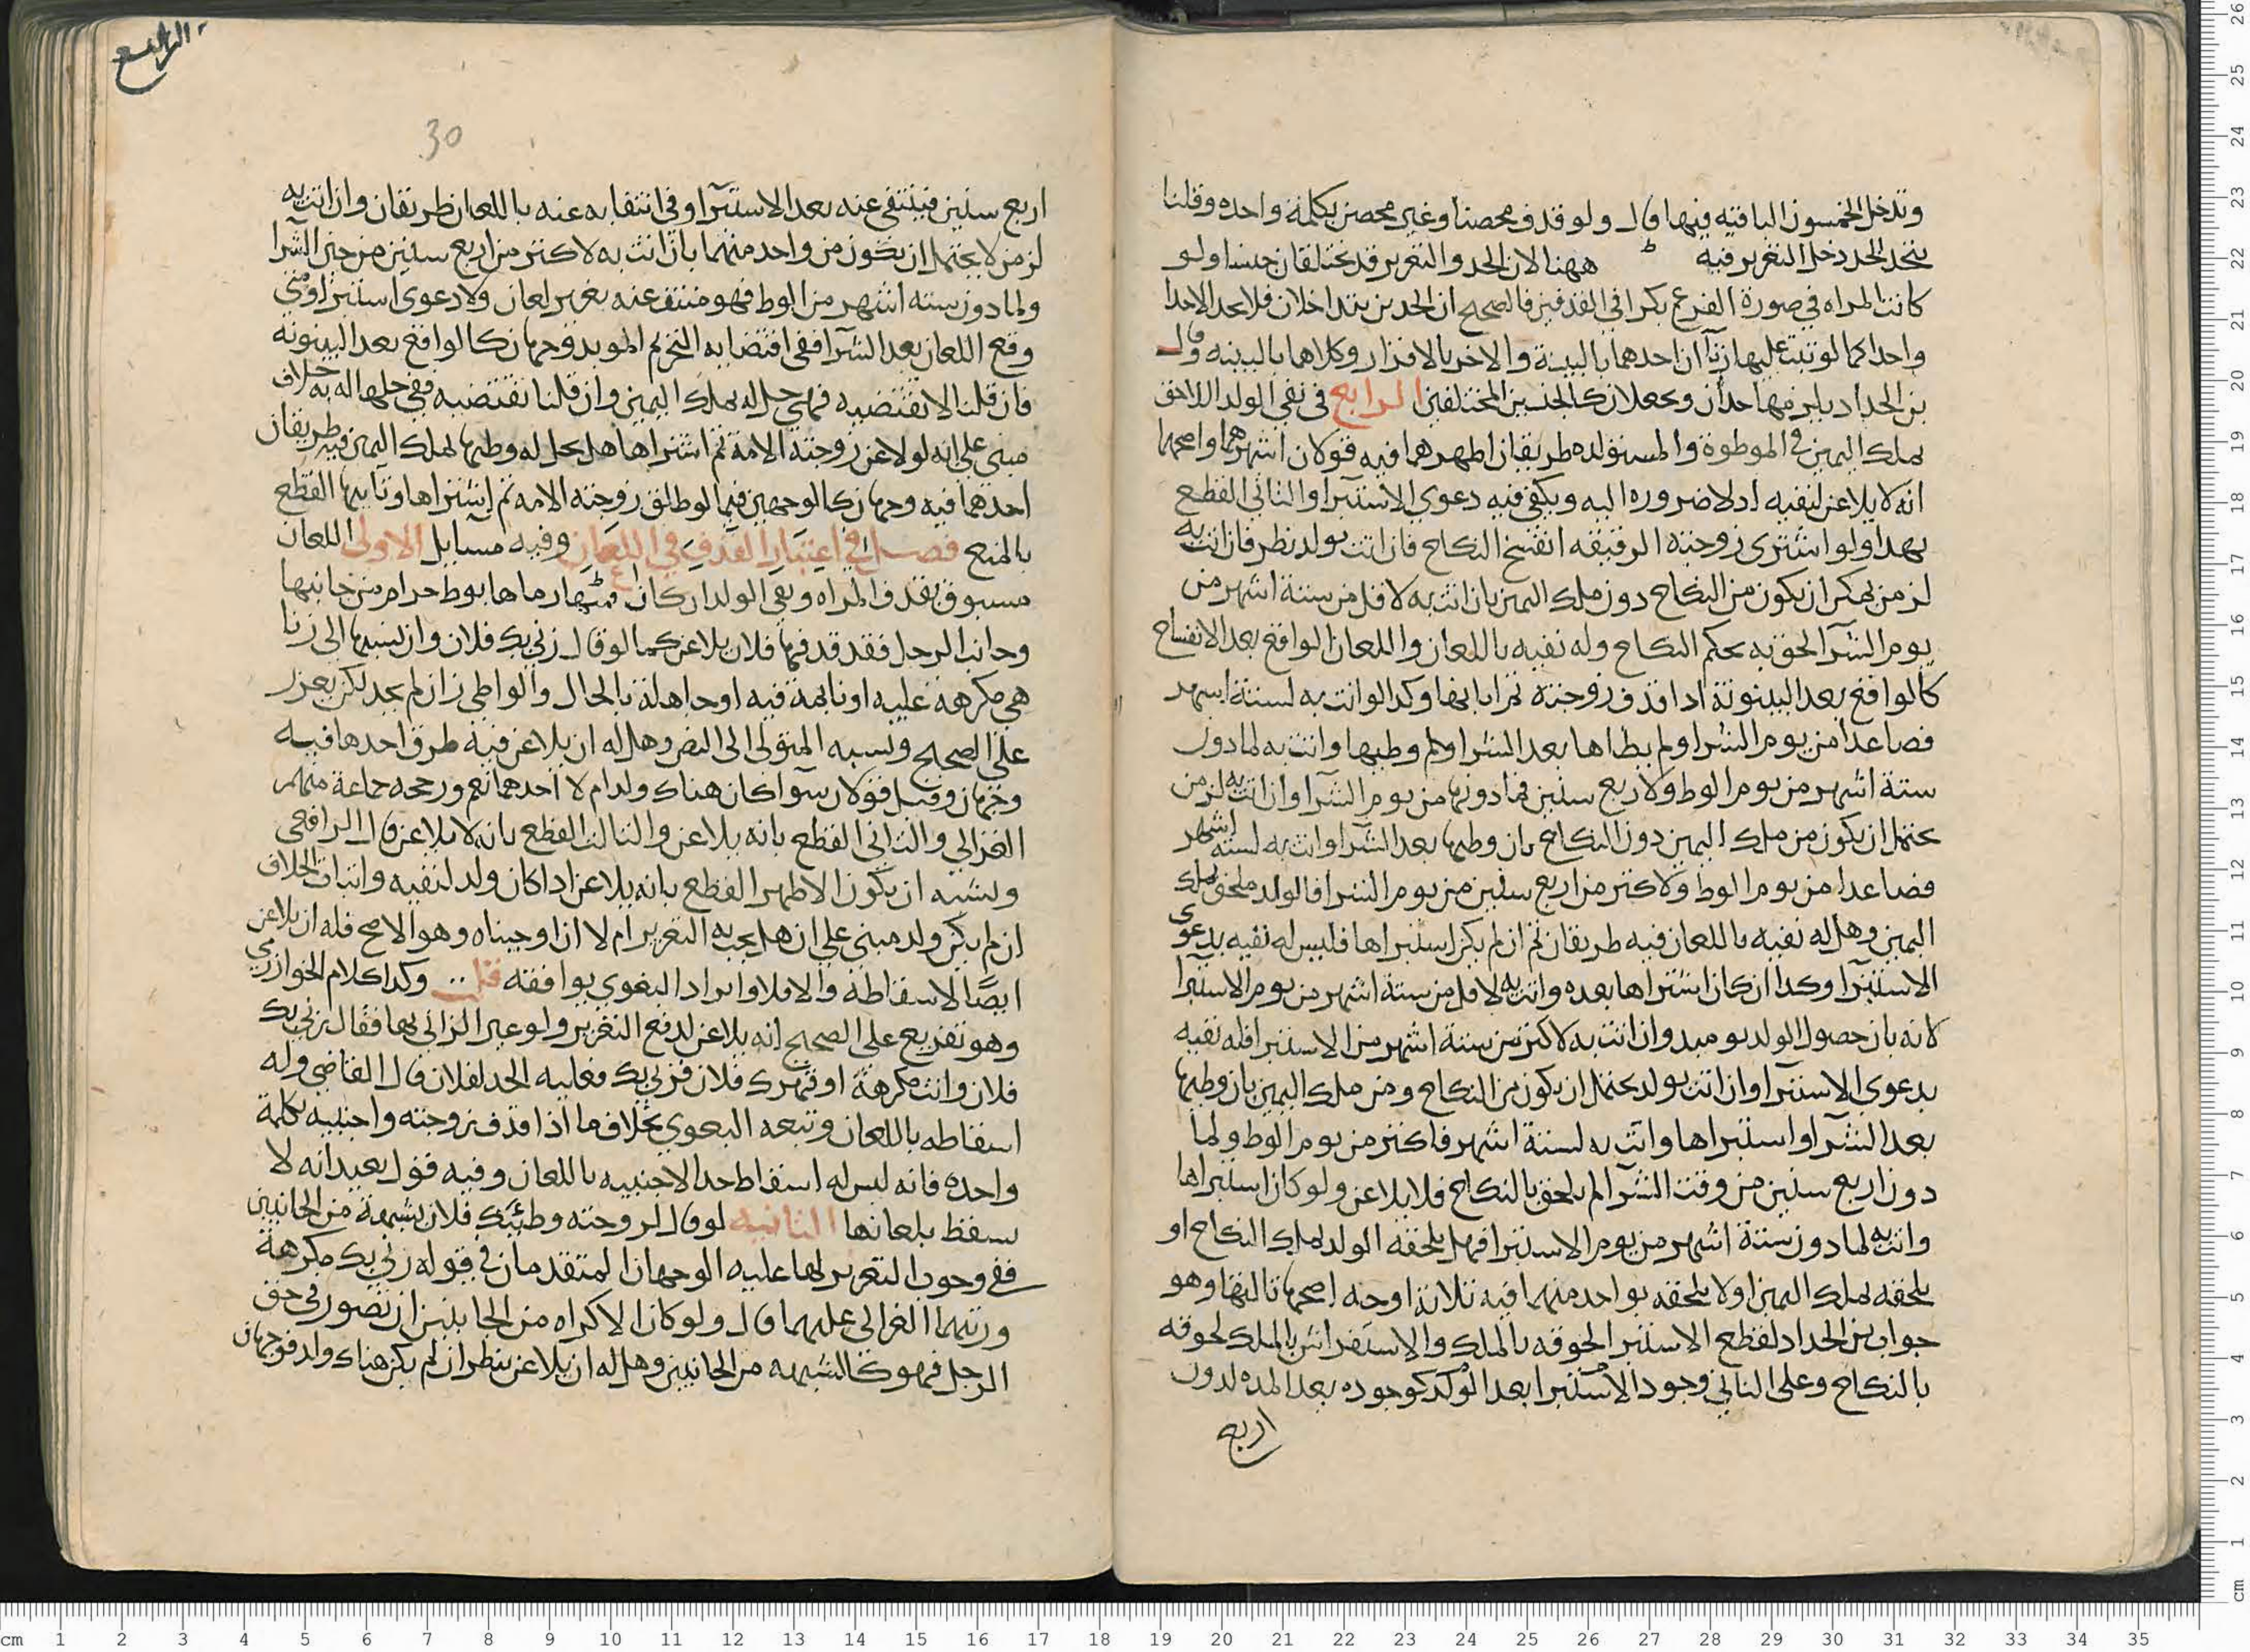 وتدخل الخمسون الباقيه فيها قال ولو قذف محصنا وغير محصن بكلمة واحده وقلنا
يتحد الحد دخل التعزير فيه ههنا لان الحد والتعزير قد يختلفان جنسا ولو
كانت المراه في صورة الفرع بكرا في القذفين فالصحيح ان الحدين يتداخلان فلا يحد الا حدا
واحدا كما لو ثبت عليها زنا آن احدهما بالبينة والاخر بالاقرار وكلاهما بالبينه وقال
بن الحداد يلزمها حدان ويجعلان كالجنسين المختلفين الرابع في نفي الولد اللاحق
بملك اليمين في الموطوة والمستولده طريقان اظهرهما فيه قولان اشهرهما واصحهما
انه لا يلاعن لنفيه اذ لا ضروره اليه ويكفي فيه دعوى الاستبرا والثاني القطع
بهذا ولو اشترى زوجته الرقيقه انفسخ النكاح فان اتت بولد نظر فان اتت به
لزمن يمكن ان يكون من النكاح دون ملك اليمين بان اتت به لاقل من ستة اشهر من
يوم الشرا لحق به بحكم النكاح وله نفيه باللعان واللعان الواقع بعد الانفساخ
كالواقع بعد البينونة اذا قذف زوجته ثم ابانها وكذا لو اتت به لستة اشهر
فصاعدا من يوم الشرا ولم يطاها بعد الشرا ولم وطيها واتت به لما دون
ستة اشهر من يوم الوط ولاربع سنين فما دونها من يوم الشرا وان اتت به لزمن
يحتمل ان يكون من ملك اليمين دون النكاح بان وطيها بعد الشرا واتت به لستة اشهر
فصاعدا من يوم الوط ولاكثر من اربع سنين من يوم الشرا فالولد ملحق بملك
اليمين وهل له نفيه باللعان فيه طريقان ثم ان لم يكن استبراها فليس له نفيه بدعوى
الاستبرا وكذا ان كان استبراها بعده واتت به لاقل من ستة اشهر من يوم الاستبرا
لانه بان حصول الولد يوميذ وان اتت به لاكثر من ستة اشهر من الاستبرا فله نفيه
بدعوى الاستبرا وان اتت بولد يحتمل ان يكون من النكاح ومن ملك اليمين بان وطيها
بعد الشرا واستبراها واتت به لستة اشهر فاكثر من يوم الوط ولما
دون اربع سنين من وقت الشرا لم يلحق بالنكاح فلا يلاعن ولو كان استبراها
واتت به لما دون ستة اشهر من يوم الاستبرا فهل يلحقه الولد بملك النكاح او
يلحقه بملك اليمين او لا يلحقه بواحد منهما فيه ثلاثة اوجه اصحها ثالثها وهو
جواب بن الحداد لقطع الاستبرا لحوقه بالملك والاستفراش بالملك لحوقه
بالنكاح وعلى الثاني وجود الاستبرا بعد الولد كوجوده بعد المده لدون
اربع
الرابع
30
اربع سنين فينتفي عنه بعد الاستبرا وفي انتفايه عنه باللعان طريقان وان اتت به
لزمن لا يحتمل ان يكون من واحد منهما بان اتت به لاكثر من اربع سنين من حين الشرا
ولما دون ستة اشهر من الوط فهو منتف عنه بغير لعان ولا دعوى استبرا ومتى
وقع اللعان بعد الشرا ففي اقتضايه التحريم الموبد وجهان كالواقع بعد البينونه
فان قلنا لا تقتضيه فهي حل له بملك اليمين وان قلنا تقتضيه ففي حلها له به خلاف
مبني على انه لو لاعن زوجته الامة ثم اشتراها هل يحل له وطيها بملك اليمين فيه طريقان
احدهما فيه وجهان كالوجهين فيما لو طلق زوجته الامه ثم اشتراها وثانيها القطع
بالمنع فصل في اعتبار القذف في اللعان وفيه مسايل الاولى اللعان
مسبوق بقذف المراه ونفي الولد ان كان فمتى رماها بوط حرام من جانبها
وجانب الرجل فقد قذفها فلان يلاعن كما لو قال زنى بك فلان وان نسبها الى زنا
هي مكرهة عليه او نايمة فيه او جاهلة بالحال والواطي زان لم يحد لكن يعزر
على الصحيح ونسبه المتولي الى النص وهل له ان يلاعن فيه طرق احدها فيه
وجهان وقيل قولان سوآ كان هناك ولد ام لا احدهما نعم ورجحه جماعة منهم
الغزالي والثاني القطع بانه يلاعن والثالث القطع بانه لا يلاعن قال الرافعي
ويشبه ان يكون الاظهر القطع بانه يلاعن اذا كان ولد لنفيه واثبات الخلاف
ان لم يكن ولد مبني على ان هل يجب به التعزير ام لا ان اوجبناه وهو الاصح فله ان يلاعن
ايضا لاسقاطه والا فلا وايراد البغوي يوافقه قلت وكذا كلام الخوارزمي
وهو تفريع على الصحيح انه يلاعن لدفع التعزير ولو عير الزاني بها فقال زنى بك
فلان وانت مكرهة او قهرك فلان فزنى بك فعليه الحد لفلان قال القاضي وله
اسقاطه باللعان وتبعه البغوي بخلاف ما اذا قذف زوجته واجنبيه بكلمة
واحده فانه ليس له اسقاط حد الاجنبيه باللعان وفيه قول بعيد انه لا
يسقط بلعانها الثانيه لو قال لزوجته وطئك فلان بشبهة من الجانبين
ففي وجوب التعزير لها عليه الوجهان المتقدمان في قوله زنى بك مكرهة
ورتبهما الغزالي عليهما قال ولو كان الاكراه من الجانبين ان تصور في حق
الرجل فهو كالشبهه من الجانبين وهل له ان يلاعن ينظر ان لم يكن هناك ولد فوجهان